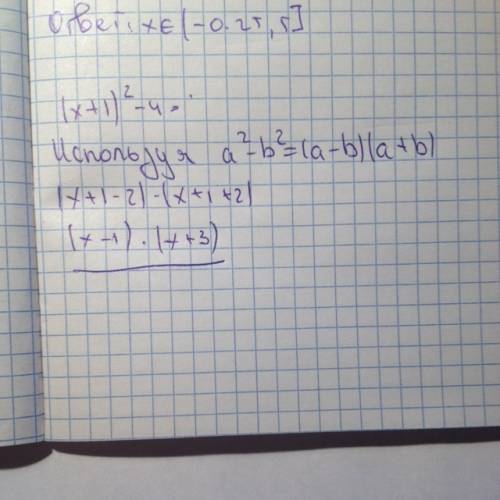 Ответ: x ∈ [-0.25, 5]
(x+1)² - 4 =
Используя a² - b² = (a-b)(a+b)
(x+1-2)·(x+1+2)
(x-1)·(x+3)